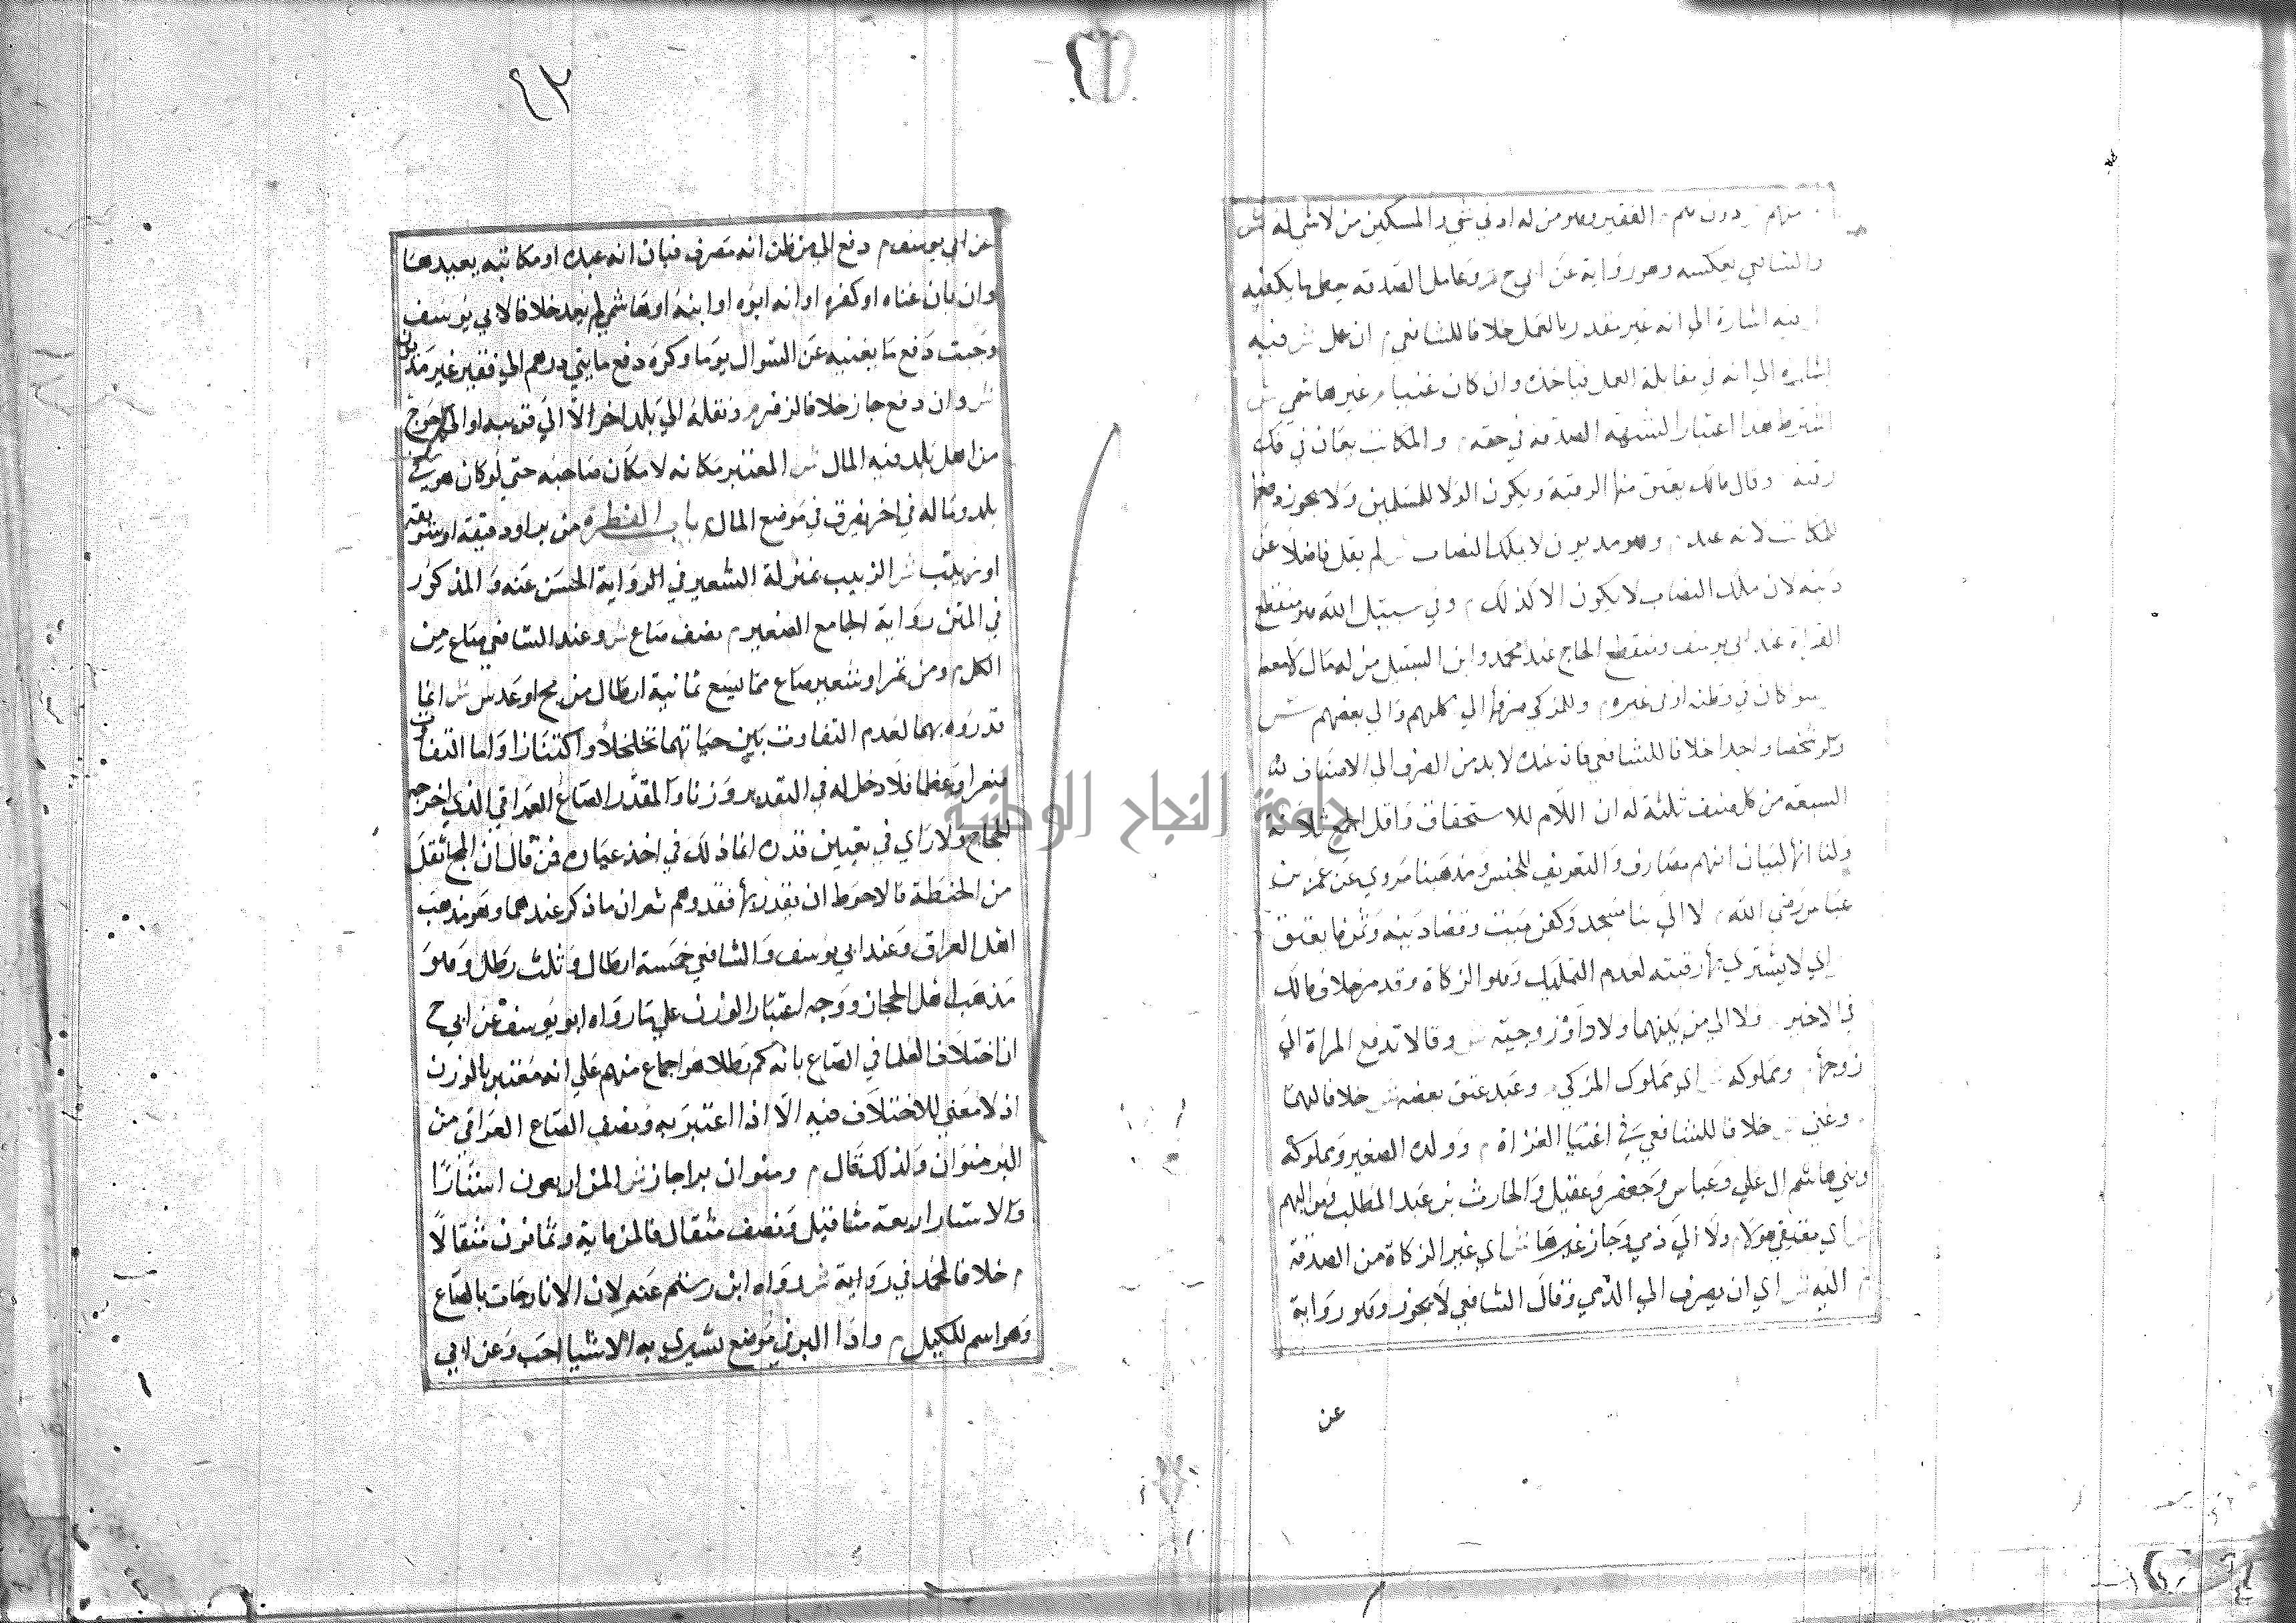 منهم دون هم م الفقير وهو من له ادني شي و المسكين من لا شي له ش
والشافعي بعكسه وهو رواية عن ابي ح م وعامل الصدقه يعطي ما يكفيه
فيه اشارة الي انه غير مقدر بالعمل خلافا للشافعي م ان عمل ش فيه
اشارة الي انه في مقابلة العمل فياخذ وان كان غنيا م غير هاشمي ش
اشترط هذا اعتبارا لشبهة الصدقه في حقه م والمكاتب يعان في فك
رقبته وقال مالك يعتق منها الرقبة ويكون الولا للمسلمين ولا يجوز دفعها
للمكاتب لانه عبد م ومديون لا يملك النصاب ش لم يقل فاضلا عن
دينه لان ملك النصاب لا يكون الا كذلك م وفي سبيل الله هو منقطع
الغزاة عند ابي يوسف ومنقطع الحاج عند محمد وابن السبيل من له مال لا معه
سوا كان في وطنه او في غيره م وللمزكي صرفها الي كلهم والي بعضهم ش
ولو شخصا واحدا خلافا للشافعي فان عنده لا بد من الصرف الي الاصناف
السبعه من كل صنف ثلثة له ان اللام للاستحقاق واقل الجمع ثلاثة
ولنا انها لبيان انهم مصارف والتعريف للجنس ومذهبنا مروي عن عمر بن
عباس رضي الله م لا الي بنا مسجد وكفن ميت وقضا دينه وثمن ما يعتق
اي لا يشتري بها رقبته لعدم التمليك وهو الزكاة وقد مر خلاف مالك
في الاخير ولا الي من بينهما ولاد او زوجيته ش وقالا تدفع المراة الي
زوجها م ومملوكه ش اي مملوك المزكي م وعبد عتق بعضه ش خلافا لهما
وغني ش خلافا للشافعي في اغنيا الغزاة م وولده الصغير ومملوكه
وبني هاشم ال علي وعباس وجعفر وعقيل والحارث بن عبد المطلب ومواليهم
ش اي معتقي هولا م ولا الي ذمي وجاز غيرها ش اي غير الزكاة من الصدقة
م اليه ش اي ان يصرف الي الذمي وقال الشافعي لا يجوز وهو رواية
عن
٤٢
عن ابي يوسف م دفع الي من ظن انه مصرف فبان انه عبده او مكاتبه يعيدها
وان بان غناه او كفره او انه ابوه او ابنه او هاشمي لم يعد خلافا لابي يوسف
وجبت دفع ما يغنيه عن السوال يوما وكره دفع مايتي درهم الي فقير غير مديون
ش وان دفع جاز خلافا لزفر م ونقله الي بلد اخر الا الي قريبه او الي احوج
من اهل بلد فيه المال ش المعتبر مكانه لا مكان صاحبه حتي لو كان هو في
بلد وماله في اخر يفرق في موضع المال م باب الفطرة من بر او دقيقه او سويقه
او زبيب ش الزبيب بمنزلة الشعير في الرواية الحسن عنه والمذكور
في المتن رواية الجامع الصغير م نصف صاع ش وعند الشافعي صاع من
الكل م ومن تمر او شعير صاع مما يسع ثمانية ارطال من مج او عدس ش انما
قدروه بهما لعدم التفاوت بين حباتهما تخلخلا واكتنازا واما التفاوت
صغرا وعظما فلا دخل له في التقدير وزنا والمقدر الصاع العراقي الذي اخرجه
الحجاج ولا راي في تعيين قدره انما ذلك في اخذ عياره فمن قال ان المج اثقل
من الحنطة فالاحوط ان يقدر بها فقد وهم ثم ان ما ذكر عندهما وهو مذهب
اهل العراق وعند ابي يوسف والشافعي خمسة ارطال وثلث رطل وهو
مذهب اهل الحجاز ووجه اعتبار الوزن علي ما رواه ابو يوسف عن ابي ح
ان اختلاف العلما في الصاع بانه كم رطلا هو اجماع منهم علي انه معتبر بالوزن
اذ لا معني للاختلاف فيه الا اذا اعتبر به ونصف الصاع العراقي من
البر منوان ولذلك قال م ومنوان برا جاز ش المن اربعون استارا
والاستار اربعة مثاقيل ونصف مثقال فالمن ماية وثمانون مثقالا
م خلافا لمحمد في رواية ش رواه ابن رستم عنه لان الاثار جات بالصاع
وهو اسم للمكيل م واذا البر في موضع تشيري به الاشيا احب وعن ابي
جامعة النجاح الوطنية